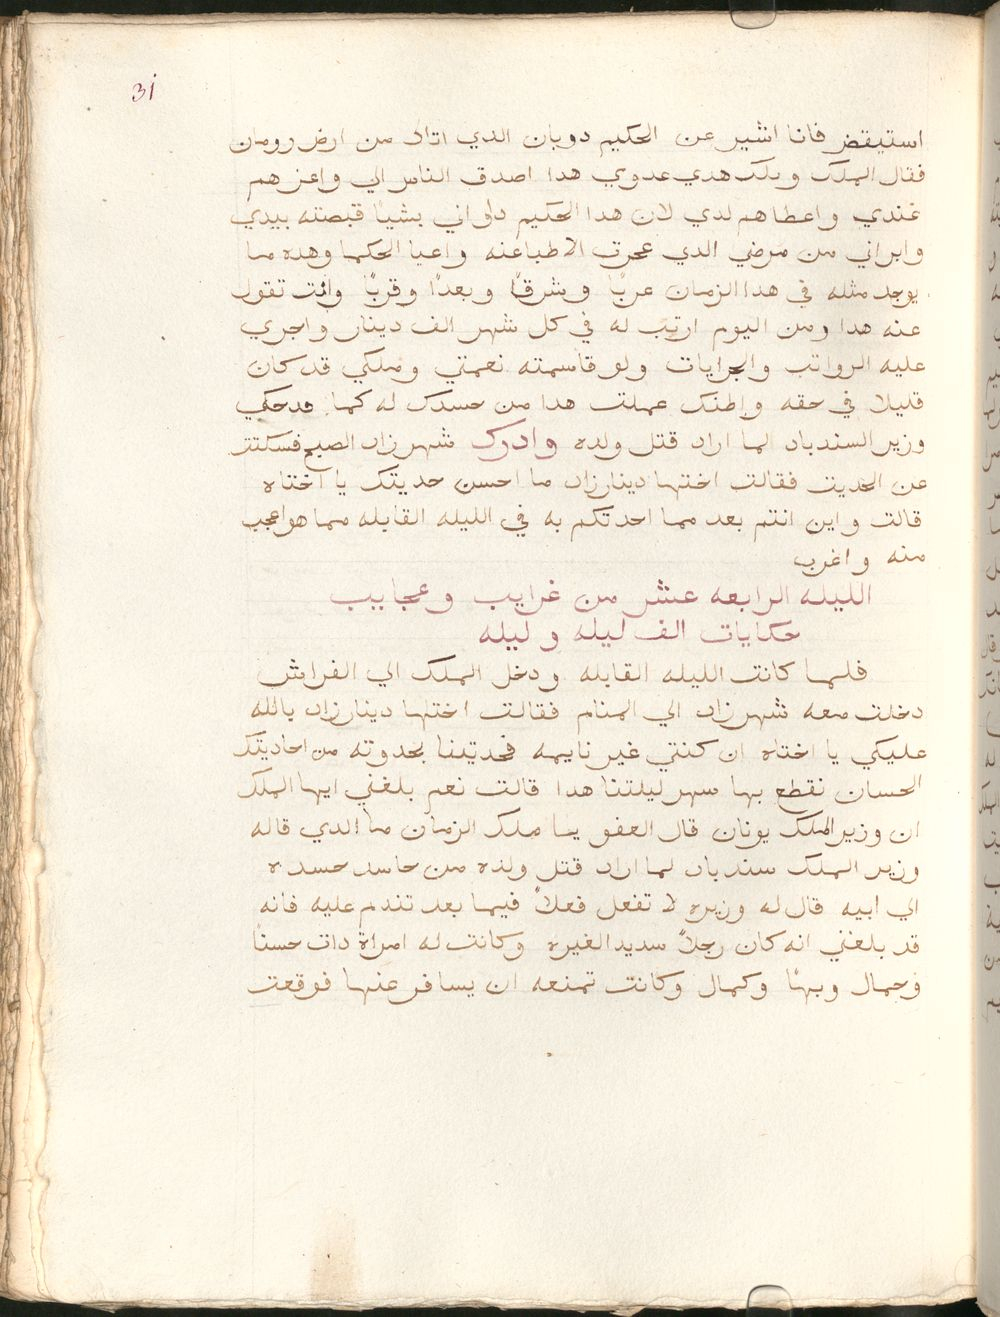 31
استيقض فانا اشير عن الحكيم دوبان الدي اتاك من ارض رومان
فقال الملك ويلك هدي عدوي هدا اصدق الناس الي واعزهم
عندي واعطاهم لدي لان هدا الحكيم داواني بشيًا قبضته بيدي
وابراني من مرضي الدي عجزت الاطباعنه واعيا الحكما وهده ما
يوجد مثله في هدا الزمان عربًا وشرقًا وبعدًا وقربًا وانت تقول
عنه هدا ومن اليوم ارتب له في كل شهر الف دينار واجري
عليه الرواتب والجرايات ولو قاسمته نعمتي وملكي قد كان
قليلا في حقه واظنك عملت هدا من حسدك له كما قد حكي
وزير السندباد لما اراد قتل ولده وادرك شهرزاد الصبح فسكتت
عن الحديت فقالت اختها دينارزاد ما احسن حديتك يا اختاه
قالت واين انتم بعد مما احدتكم به في الليله القابله مما هو اعجب
منه واغرب
الليله الرابعه عشر من غرايب وعجايب
حكايات الف ليله وليله
فلما كانت الليله القابله ودخل الملك الي الفراش
دخلت معه شهرزاد الي المنام فقالت اختها دينارزاد بالله
عليكي يا اختاه ان كنتي غير نايمه فحديتنا بحدوته من احاديتك
الحسان نقطع بها سهر ليلتنا هدا قالت نعم بلغني ايها الملك
ان وزير الملك يونان قال العفو يا ملك الزمان ما الدي قاله
وزير الملك سندباد لما اراد قتل ولده من حاسد حسده
الي ابيه قال له وزيره لا تفعل فعلاً فيما بعد تندم عليه فانه
قد بلغني انه كان رجلاً سديد الغيره وكانت له امراة دات حسنًا
وجمال وبهًا وكمال وكانت تمنعه ان يسافر عنها فوقعت